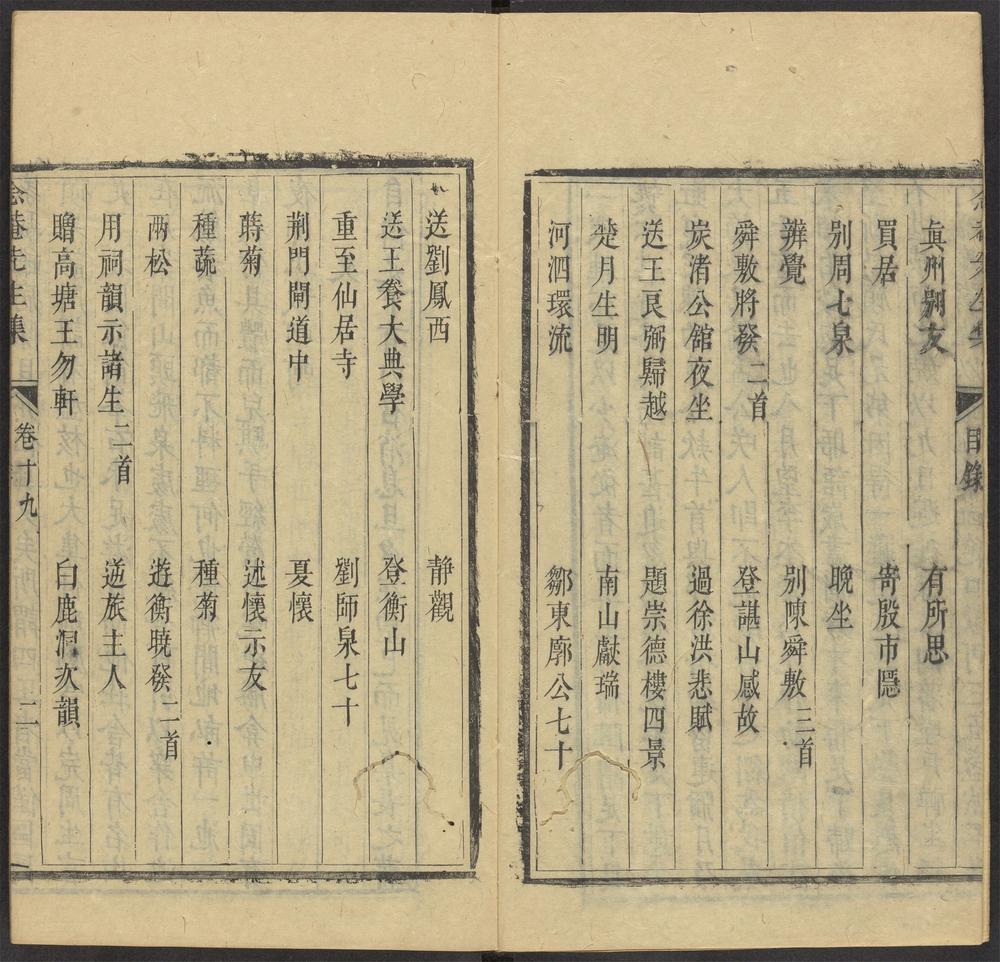 目錄
眞州别友 有所思
買居 寄殷市隱
别周七泉 晚坐
辨覺 别陳舜敷三首
舜敷將發二首 登諶山感故
炭渚公館夜坐 過徐洪悲賦
送王艮弼歸越 題崇德樓四景
楚月生明 南山獻瑞
河泗環流 鄒東廓公七十
送劉鳳西 静觀
送王養大典學 登衡山
重至仙居寺 劉師泉七十
荆門閘道中 憂懷
蒔菊 述懷示友
種蔬 種菊
兩松 遊衡曉發二首
用祠韻示諸生二首 逆旅主人
贈高塘王勿軒 白鹿洞次韻
念菴先生集 卷十九 二